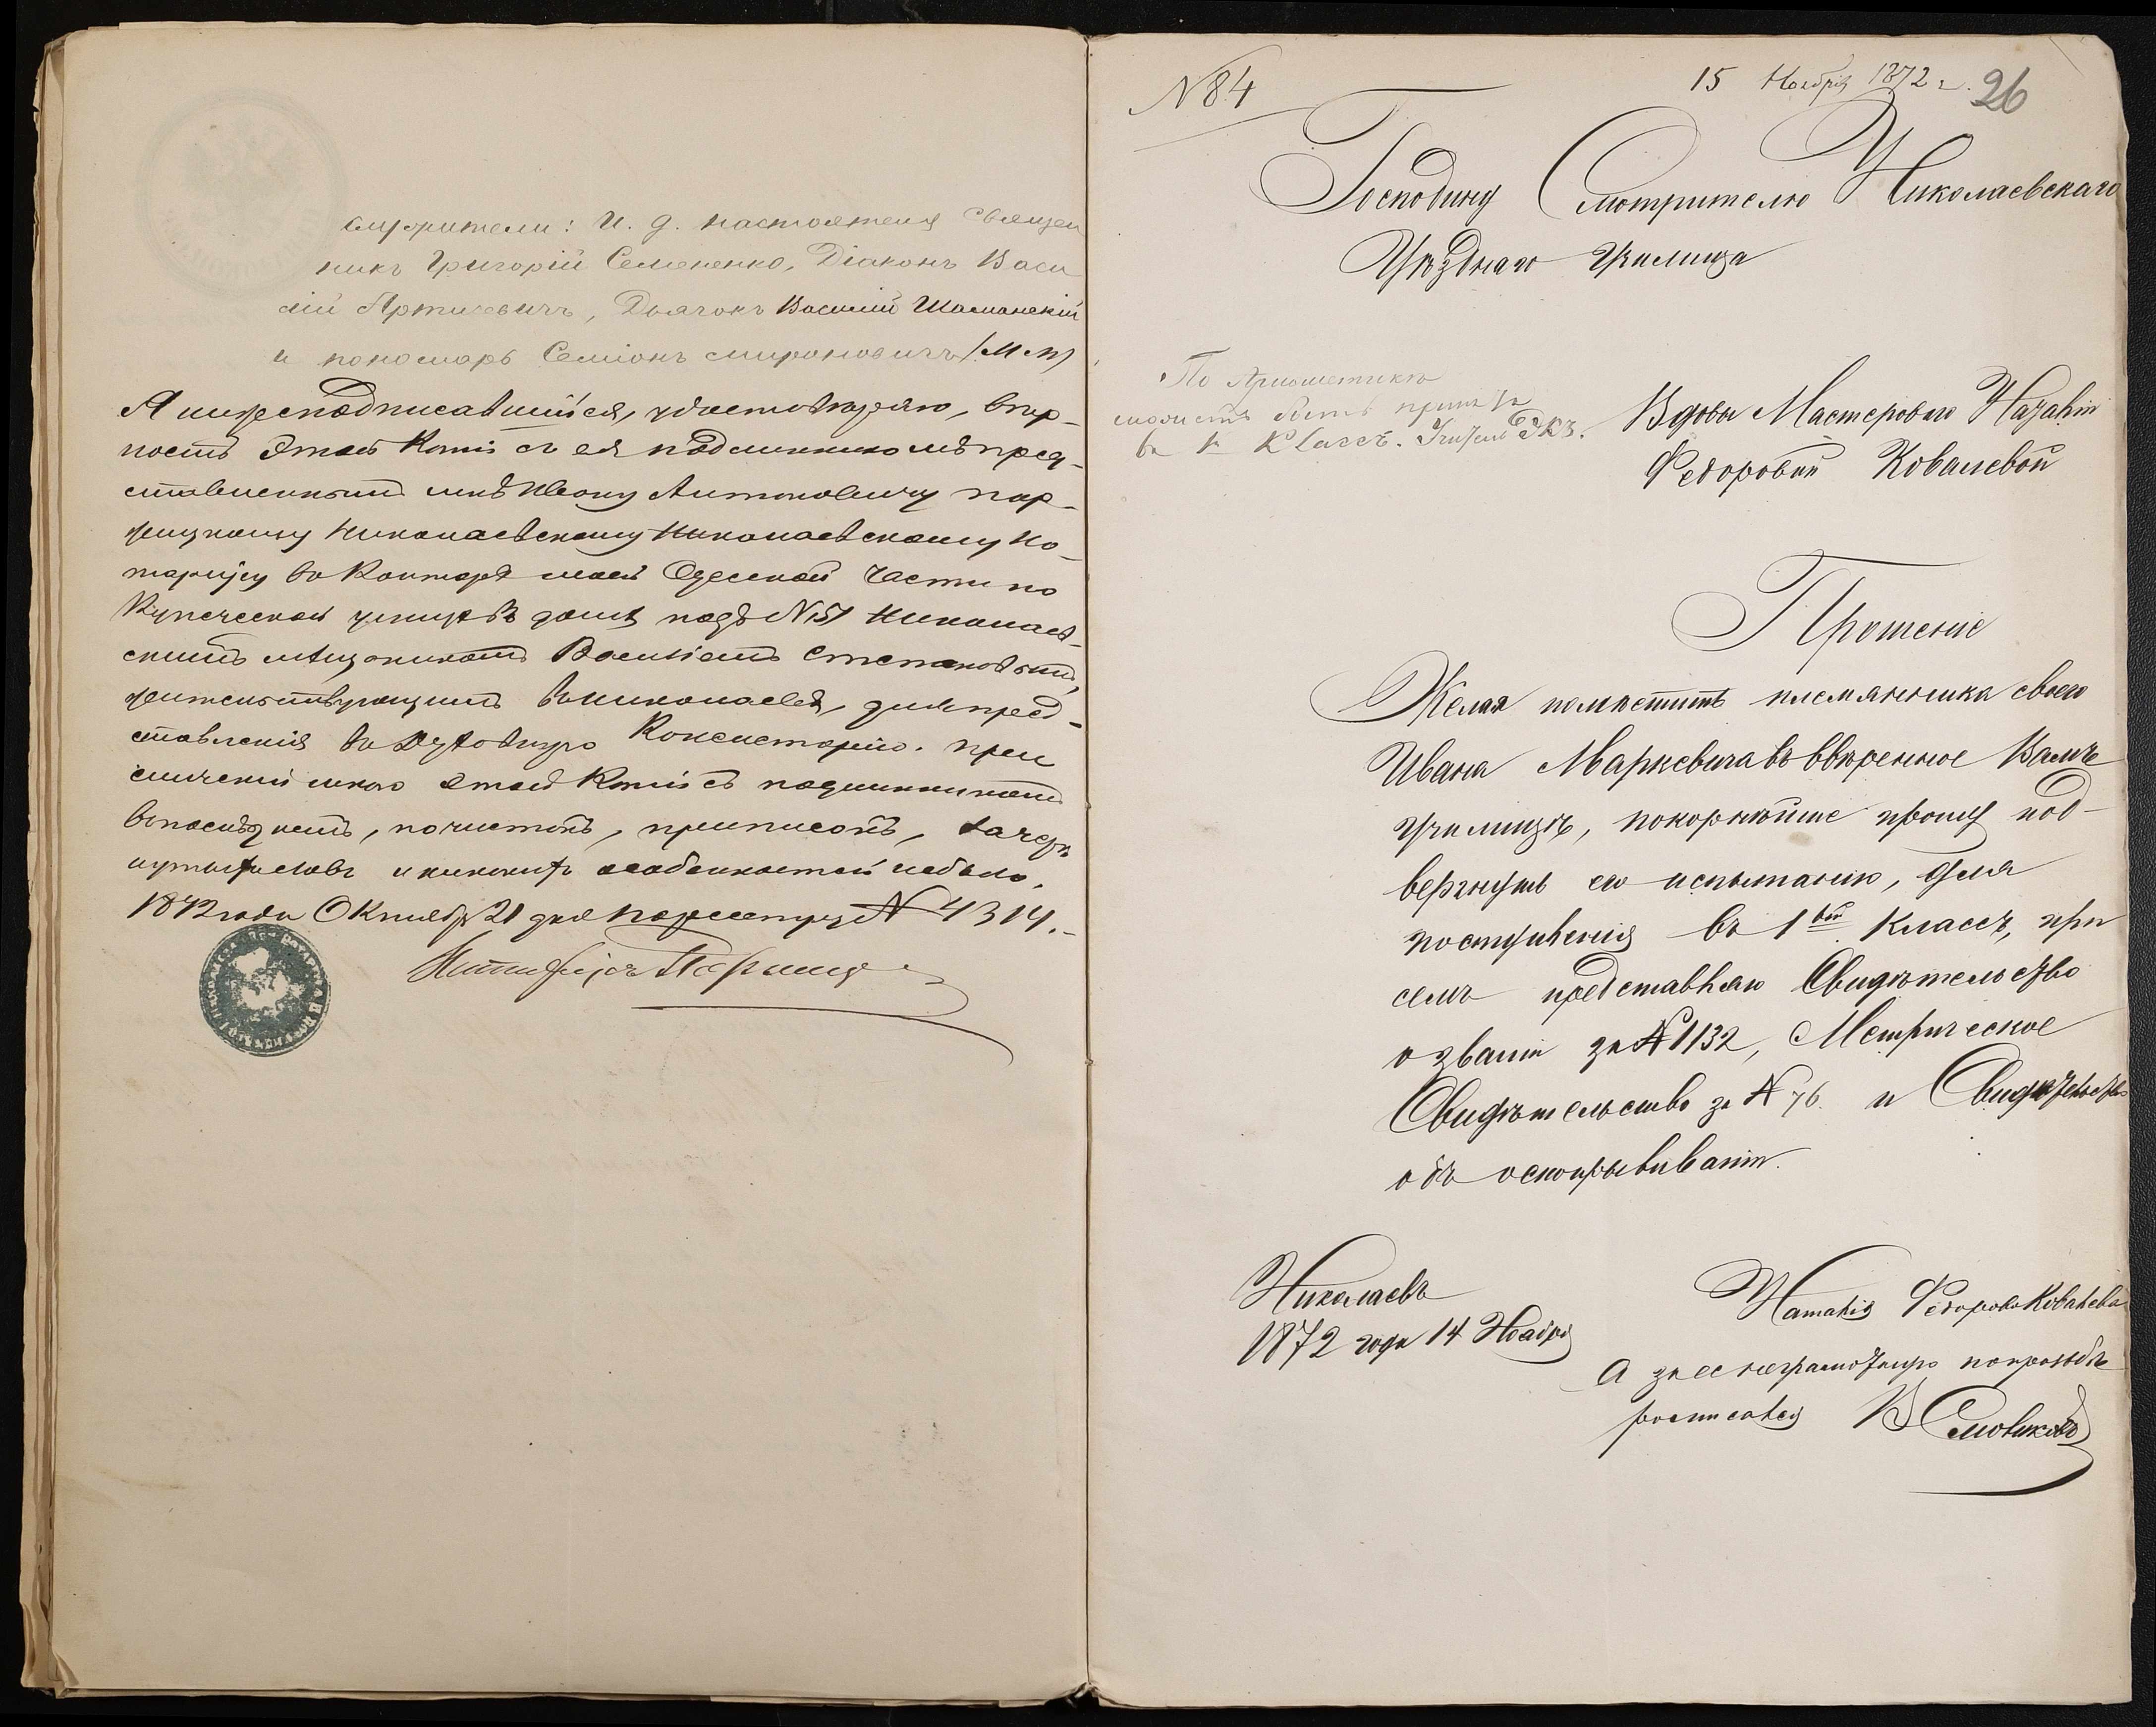 служители: И. д. настоятеля Священ
никъ Григорій Семененко, Діаконъ Васи
лій Артисевичъ, Дьячокъ Василій Шаманскій
и пономарь Семіонъ Мироновичъ (М.П)
Я нижеподписавшійся, удостовѣряю, вѣр-
ность этой копіи съ ея подлинникомъ пред-
ставленнымъ мнѣ Ивану Антоновичу Пар-
жицкому Николаевскому Николаевскому Но-
таріусу въ Конторѣ моей Одесской части по
Купеческой улицѣ въ домѣ подъ №51 Николаев-
скимъ мѣщаниномъ Василіемъ Степановымъ,
жительствующимъ въ Николаевѣ, для пред-
ставленія въ Духовную Консисторію. При
сличеніи мною этой копіи съ подлинникомъ
въ послѣднемъ, почистокъ, приписокъ, зачерк
нутыхъ словъ и никакихъ особенностей небыло.
1872 года Октября 21 дня по реестру № 4314.-
Нотаріусъ
№ 84
15 Ноября 1872 г.
26
Господину Смотрителю Николаевскаго
Уѣзднаго Училища
По Арифметикѣ
можетъ быть принятъ
въ 1 классъ. Учитель
Вдовы Мастероваго Наталіи
Федоровой Ковалевой
Прошеніе
Желая помѣстить племянника своего
Ивана Маркевича въ ввѣренное Вамъ
училище, покорнѣйше прошу под-
вергнуть его испытанію, для
поступленія въ 1вый классъ, при
семъ представляю Свидѣтельство
о званіи за № 1132, Метрическое
Свидѣтельство за № 76. и Свидѣтельство
объ оспопрививаніи.
Николаевъ
1872 года 14 Ноября
Наталія Федорова Ковалева
а за ее неграмотную попрозьбѣ
росписался В